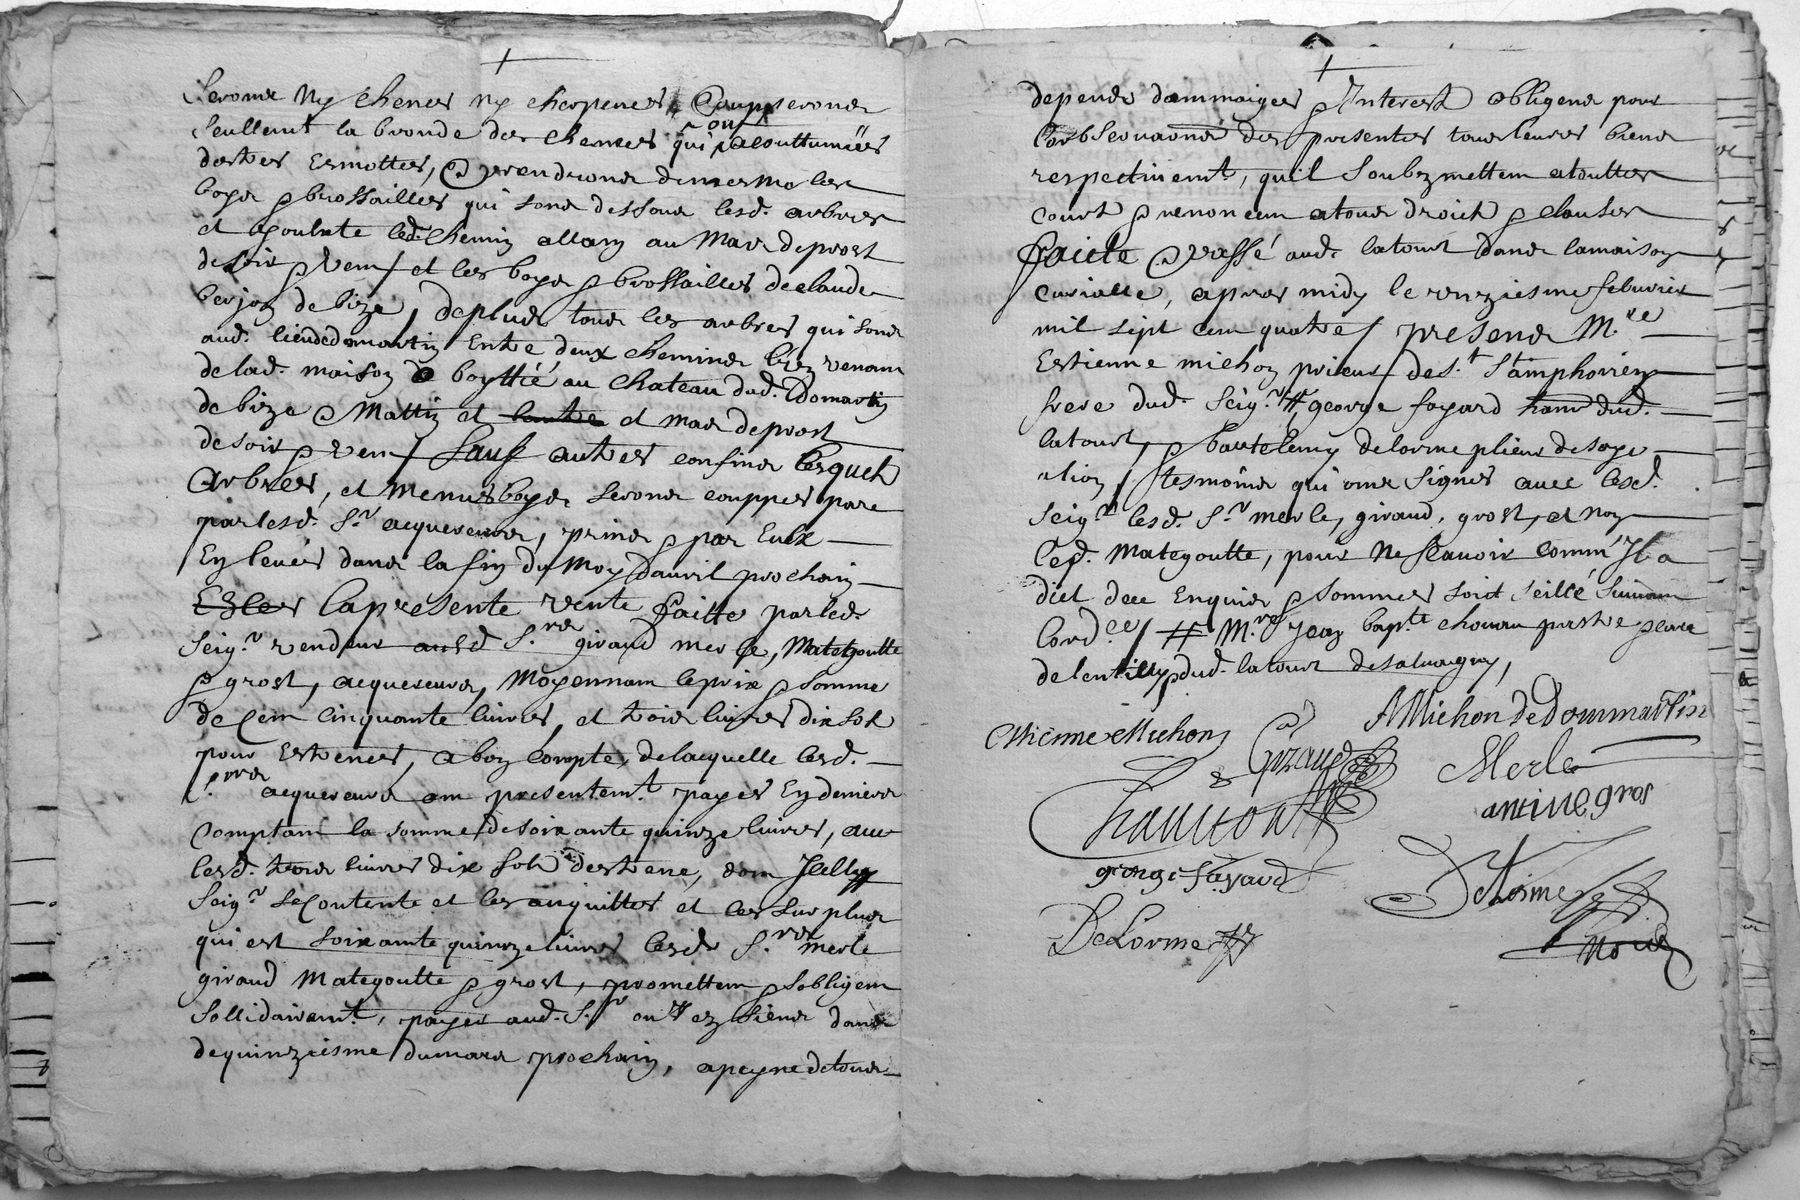 seronne ny chenes ny cherpenes, Coupperonne
seullemt la bronde des chenes qui ont accouttumées
destres esmottes, & prendronne de mesme les
boys & brossailles qui sont dessoub lesd. arbres
et joubate led. chemin allant au Mas deprost
de soir & vent et les boys & brossailles de claude
berjon de bize, de plus tous les arbres qui sont
aud. lieu de domartin Entre deux chemins lun venant
de lad. maison de boyttié au chateau dud. Domartin
de bize & Mattin et et mas deprost
de soir & vent Sauf autres confins lesquels
Arbres, et menus boys seronne couppes pare
par lesd. Sr acquereurs, prins & par Eulx
En leués dans la fin du Moy Dauril prochain
la presente vente faitte par led.
Seigr vendeur ausd Srs giraud merle, Mategoutte
& grost, acquereurs, Moyennant le prix & somme
de Cent cinquante liures, et trois liures dix sol
pour Estrenes, a bon compte, de laquelle lesd.
Srs acquereurs ont presentemt. payes En deniers
comptant la somme de soixante quinze liures, auec
lesd. trois liures dix sols destrene, dont Icelluy
Seigr se Contente et les en quitte et le surplus
qui est soixante quinze liures lesd Srs merle
giraud Mategoutte & grost, promettent & sobligent
sollidairemt, payer aud. Sr ou es siens dans
le quinziesme du mars prochain, a peyne de tous
depends dommaiges & Interest obligent pour
lobseruaonne des presentes tous leurs biens
respectiuemt, quil soubzmettent a touttes
cours & renoncent a tous droict & clauses
Faicte & passé aud. latour dans la maison
curialle, apres midy le onziesme febuvrier
mil sept cent quatre / presens Mre
Estienne michon prieur de St. Samphorien
frere dud. Seigr # george fayard dud.
latour, & bartelemy delorme plieur de soye
a lion, tesmoins qui ont signes auec lesd.
Seigr lesd. Sr merle, giraud, grost, et non
led. Mategoutte, pour ne scauoir comm' Il a
dict de ce Enquis & sommes soit seillé suiuant
lordce / # Mre Jean bapte chouan prestre & cure
de lentilly & dud. latour de saluagny,
Estienne Michon
A Michon de Dommartin
Giraud
Merle
antoine gros
george fayard
Delorme
DeLorme